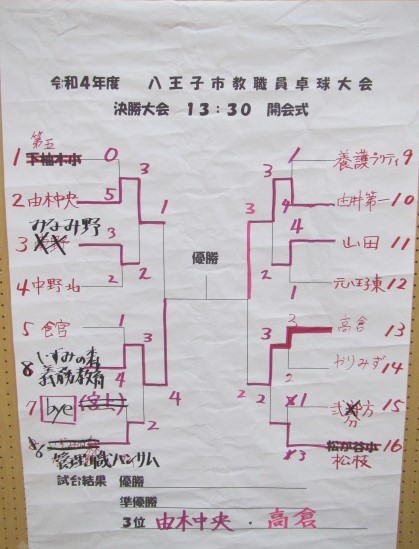 令和4年度 八王子市教職員卓球大会
決勝大会 13:30 開会式
第五
1 下柚木小 0
2 由木中央 5
3
1
みなみ野
3 3
2
4 中野北 2
5 食宮 1
3
6 いずみの森
義務教育 4
2
4
7 bye (宮上)
2
8 管理職バンリム
優勝
1 養護ラリティ 9
4 由井第一 10
3
4 山田 11
2
1 元八王子東 12
3 高倉 13
3
2 やりみず 14
2
1 弐分方 15
2
3 松が谷小 16
松枝
試合結果 優勝
準優勝
3位 由木中央・高倉